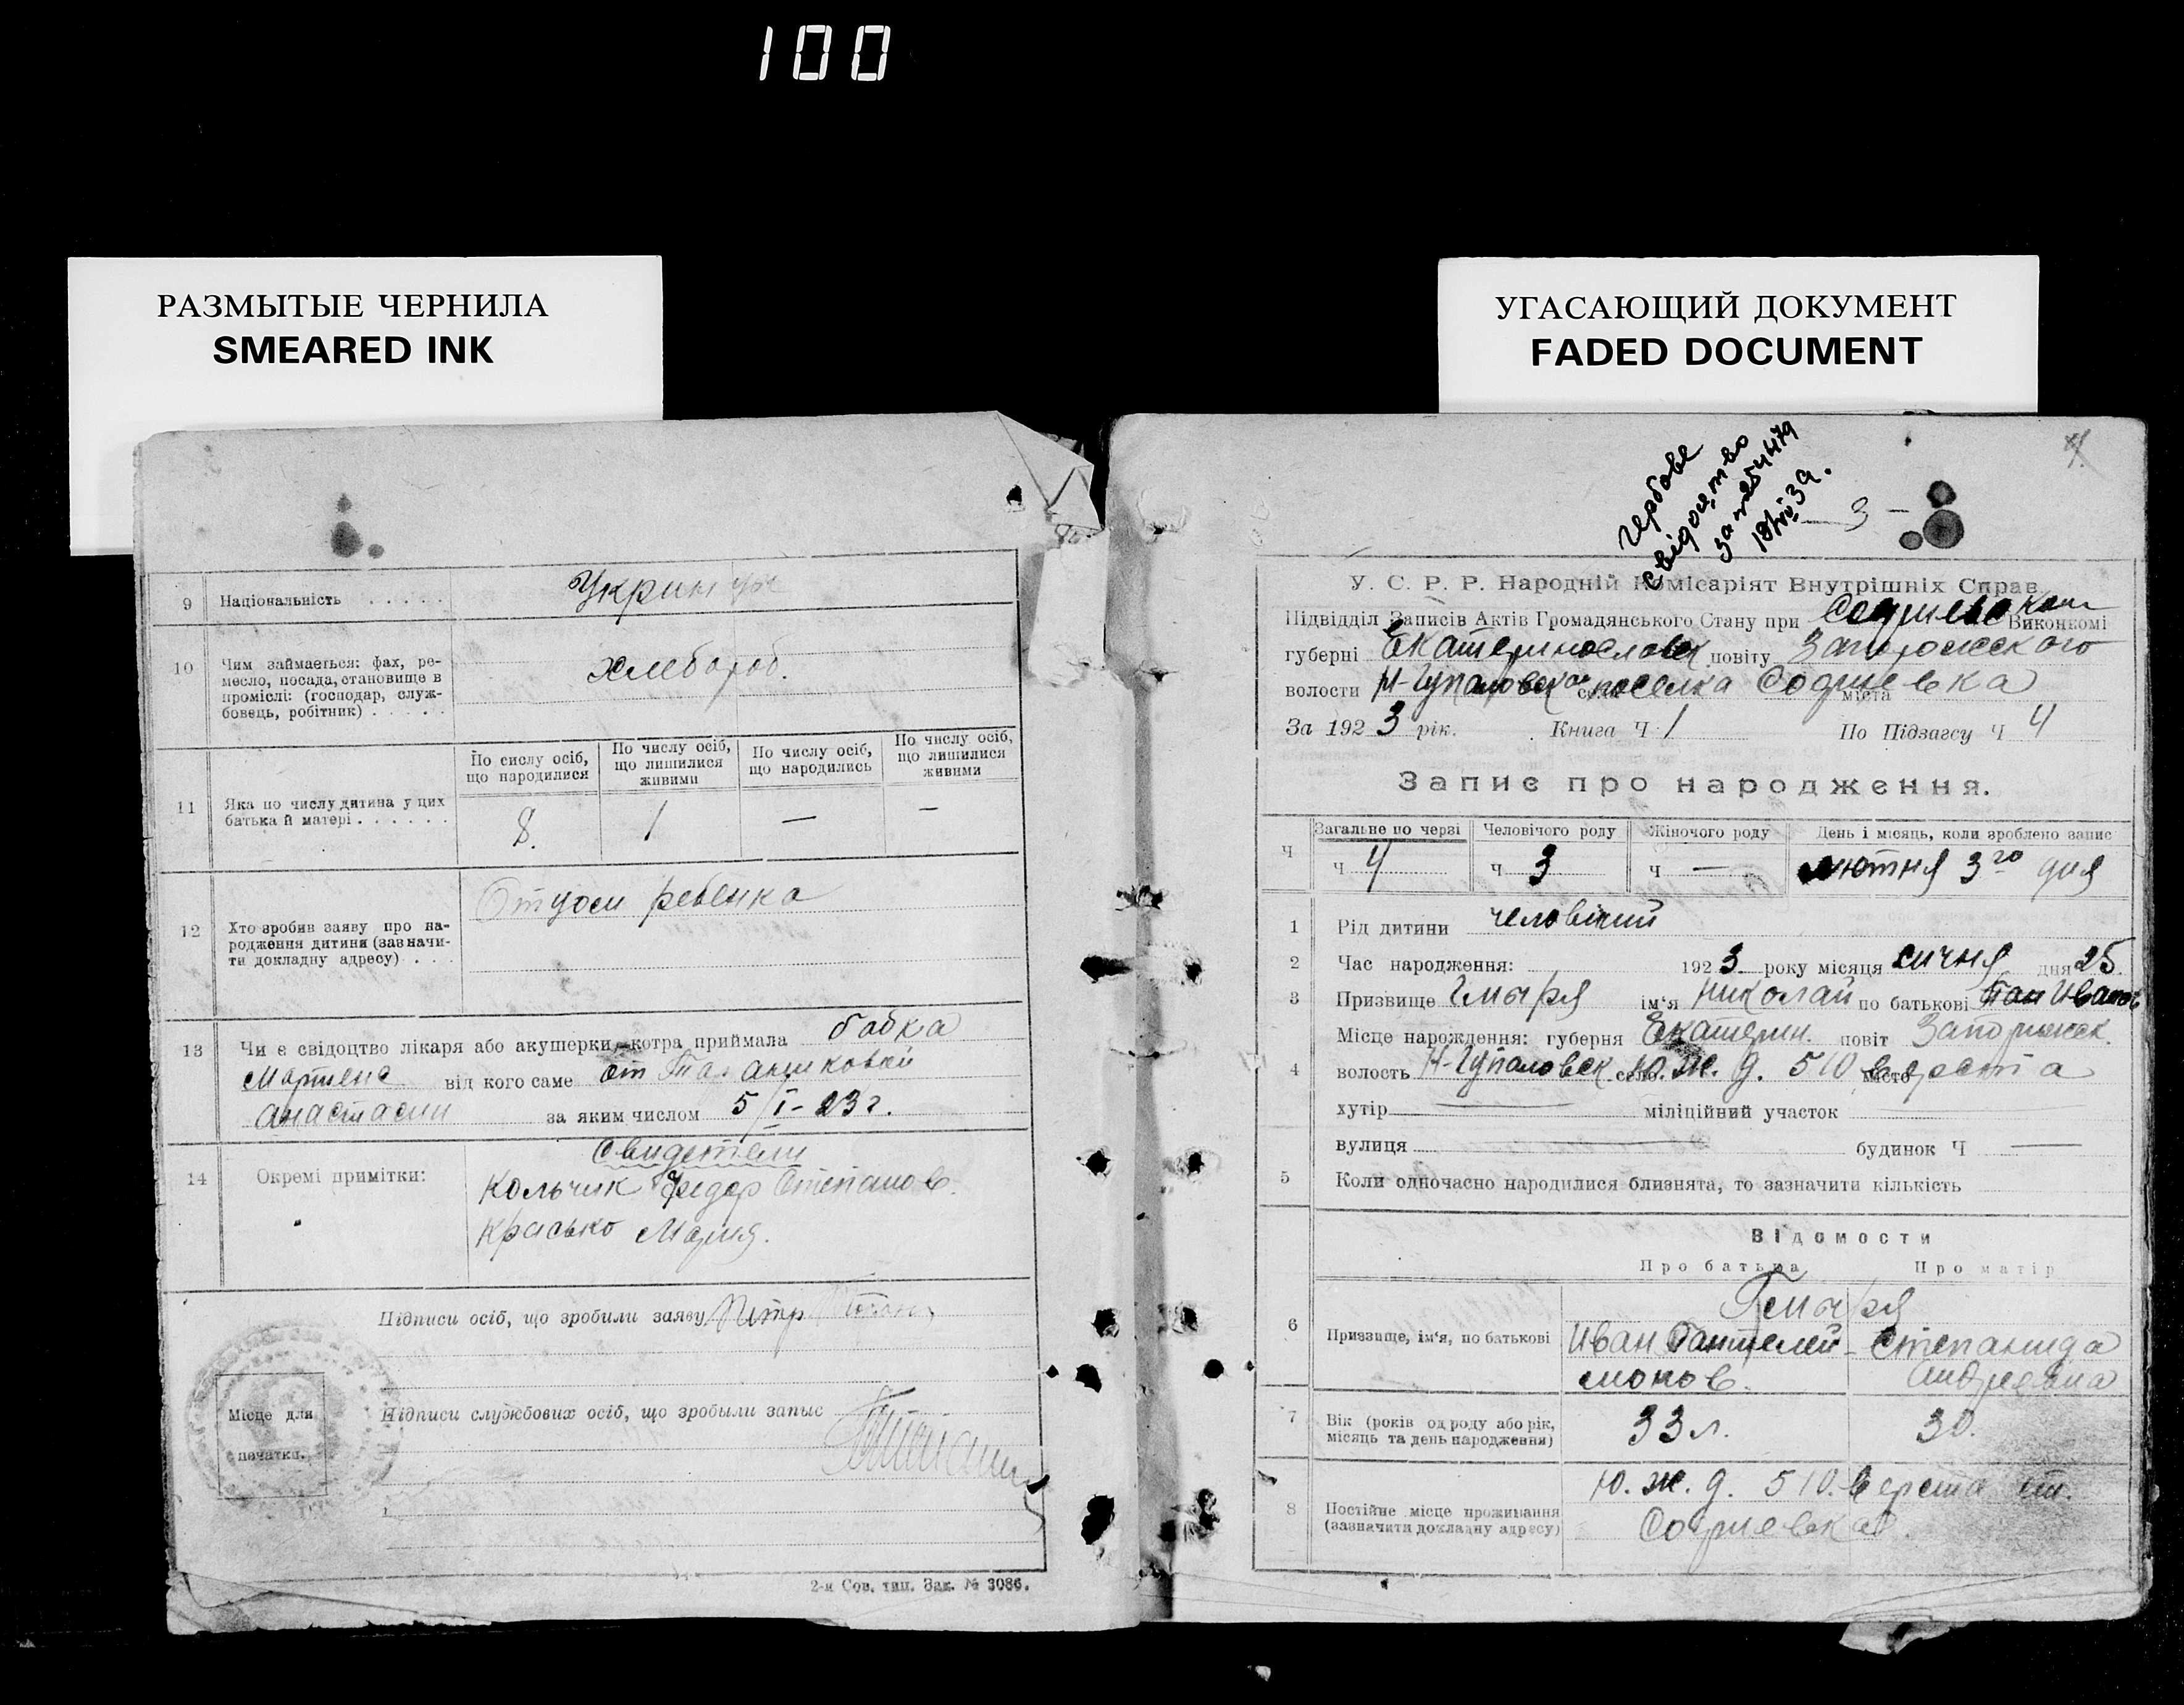 100
РАЗМЫТЫЕ ЧЕРНИЛА
SMEARED INK
УГАСАЮЩИЙ ДОКУМЕНТ
FADED DOCUMENT
9 Національність . . . . .
10 Чим займається: фах, ре-
месло, посада, становище в
промислі: (господар, служ-
бовець, робітник) . . . . .
хлебороб.
11 Яка по числу дитина у цих
батька й матері . . . . . .
По сислу осіб,
що народилися
8.
По числу осіб,
що лишилися
живими
1
По числу осіб,
що народились
—
По числу осіб,
що лишилися
живими
—
12 Хто зробив заяву про на-
родження дитини (зазначи-
ти докладну адресу) . . .
Отцом ребенка
13 Чи є свідоцтво лікаря або акушерки, котра приймала бабка
від кого саме от
Анастасии за яким числом 5/I-23 г.
14 Окремі примітки:
Свидетели
Кольчик Федор Степанов.
Красько Мария.
Підписи осіб, що зробили заяву
Місце для
печатки.
Підписи службових осіб, що зробыли запыс
2-я Сов. тип. Зак. № 3086.
4.
Гербове
свідоцтво
за №
— 3 —
У. С. Р. Р. Народній Комісаріят Внутрішніх Справ
Підвідділ Записів Актів Громадянського Стану при Виконкомі
губерні Екатеринославск повіту Запорожского
волости Н-Гупаловской поселка Софиевка міста
За 1923 рік. Книга Ч 1 По Підзагсу Ч 4
Запис про народження.
Ч
Загальне по черзі
Ч 4
Человічого роду
Ч 3
Жіночого роду
Ч —
День і місяць, коли зроблено запис
лютня 3го дня
1 Рід дитини человічий
2 Час народження: 1923 року місяця січня дня 25.
3 Призвище Гмыря ім‘я Николай по батькові Иванов
4 Місце нарождення: губерня Екатерин. повіт Запорожск.
волость Н-Гупаловск. село Ю. Ж. д. 510 верста місто
хутір — міліційний участок
вулиця — будинок Ч —
5 Коли одночасно народилися близнята, то зазначити кількість
Відомости
Про батька Про матір
6 Призвище, ім‘я, по батькові
Гмыря
Иван Пантелей- Степанида
монов. Андреевна
7 Вік (років од роду або рік,
місяць та день народження)
33 л. 30.
8 Постійне місце проживання
(зазначити докладну адресу)
Ю. ж. д. 510. верста ст.
Софиевка.